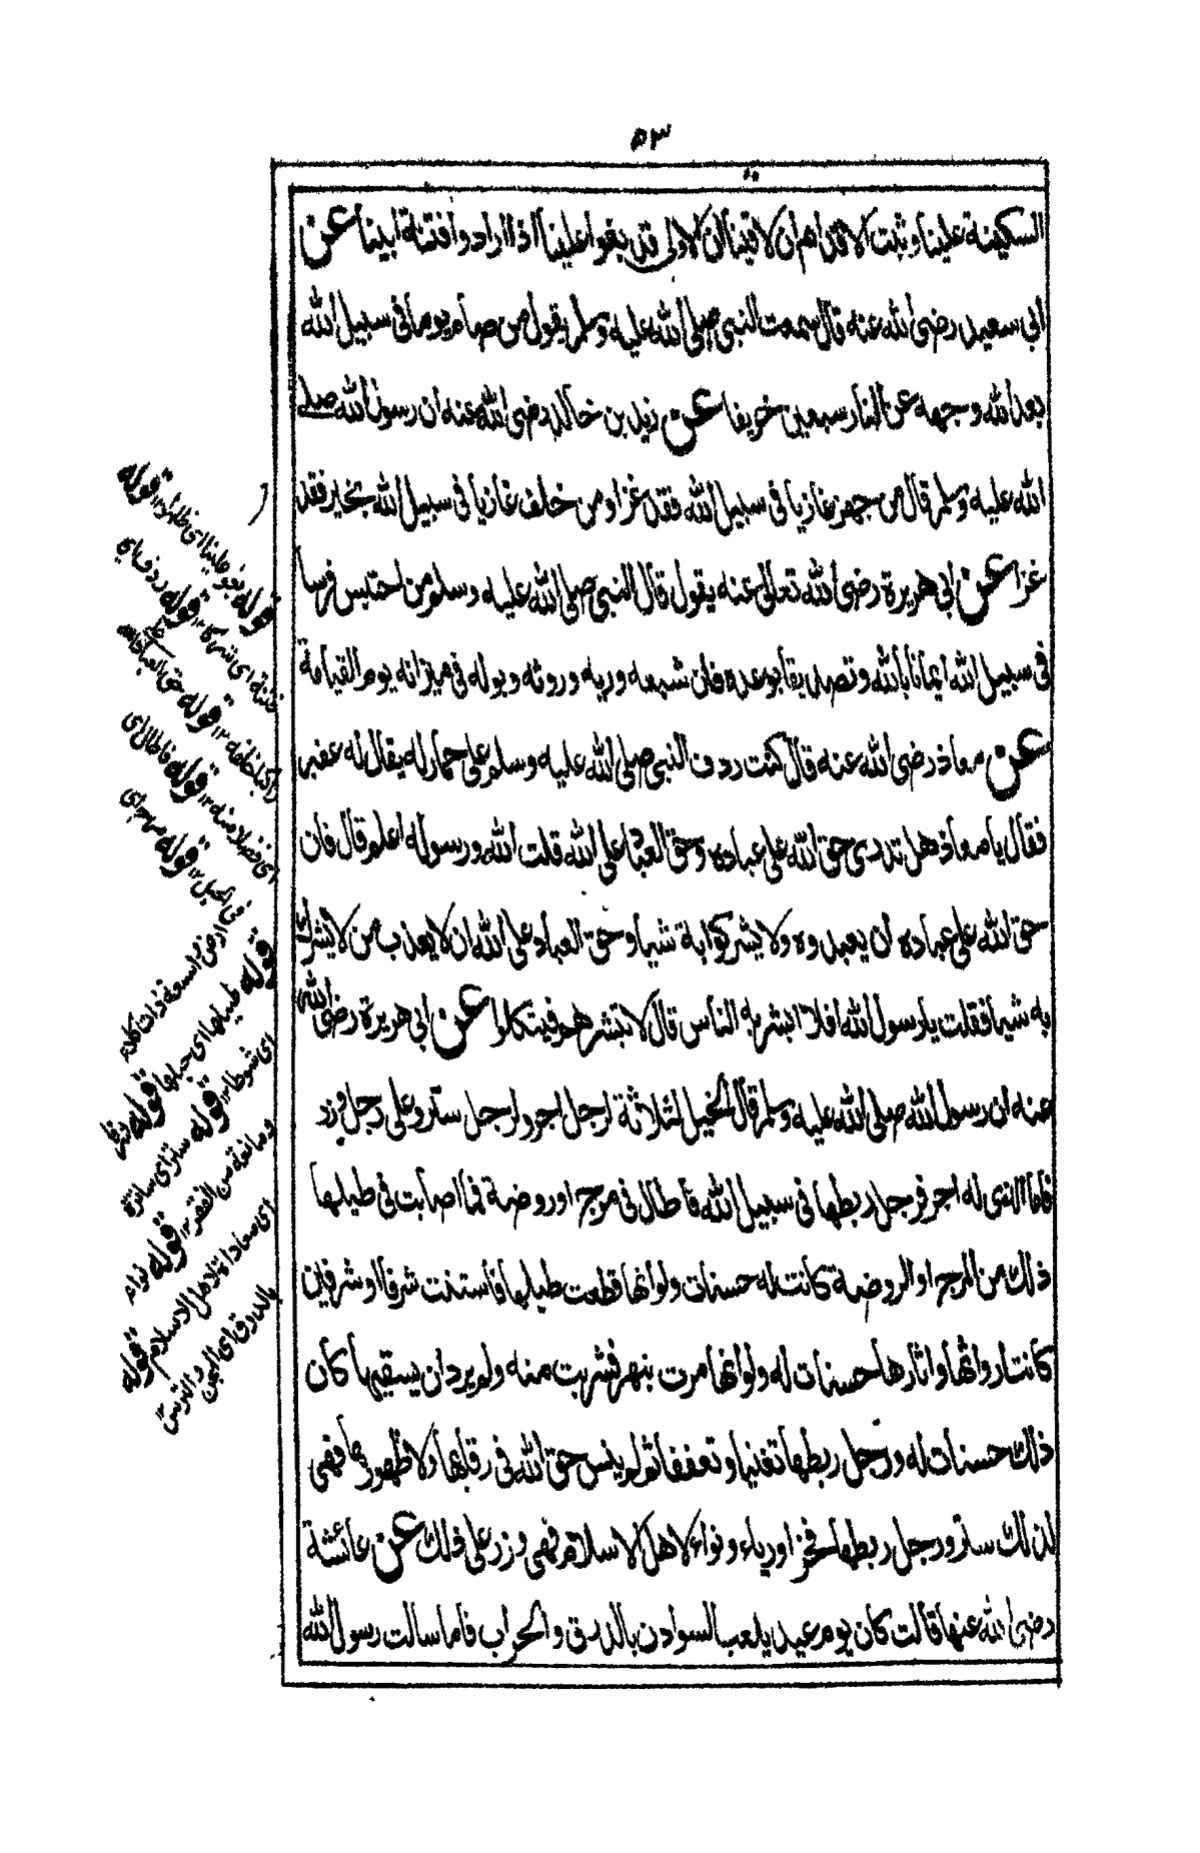 ۵۳
السكينة علينا وثبت الاقدام ان لاقينا ان الاولى قد بغوا علينا اذا ارادوا فتنة ابينا عن
ابي سعيد رضي الله عنه قال سمعت النبي صلى الله عليه وسلم يقول من صام يوما في سبيل الله
بعد الله وجهه عن النار سبعين خريفا عن زيد بن خالد رضي الله عنه ان رسول الله صلے
الله عليه وسلم قال من جهز غازيا في سبيل الله فقد غزا ومن خلف غازيا في سبيل الله بخير فقد
غزا عن ابي هريرة رضي الله تعالى عنه يقول قال النبي صلى الله عليه وسلم من احتبس فرسا
في سبيل الله ايمانا بالله وتصديقا بوعده فان شبعه وريه وروثه وبوله في ميزانه يوم القيامة
عن معاذ رضي الله عنه قال كنت ردف النبي صلى الله عليه وسلم على حمار له يقال له عفير
فقال يا معاذ هل تدري حق الله على عباده وحق العباد على الله قلت الله ورسوله اعلم قال فان
حق الله على عباده ان يعبدوه ولا يشركوا به شيا وحق العباد على الله ان لا يعذب من لا يشرك
به شيا فقلت يارسول الله افلا ابشر به الناس قال لا تبشرهم فيتكلوا عن ابي هريرة رضي الله
عنه ان رسول الله صلى الله عليه وسلم قال الخيل لثلاثة لرجل اجر ولرجل ستر وعلى رجل وزر
فاما الذي له اجر فرجل ربطها في سبيل الله فاطال في مرج او روضة فما اصابت في طيلها
ذلك من المرج او الروضة كانت له حسنات ولو انها قطعت طيلها فاستنت شرفا او شرفين
كانت ارواثها واثارها حسنات له ولو انها مرت بنهر فشربت منه ولم يرد ان يسقيها كان
ذلك حسنات له ورجل ربطها تغنيا وتعففا ثم لم ينس حق الله في رقابها ولا ظهورها فهي
لذلك ستر ورجل ربطها فخرا ورياء ونواء لاهل الاسلام فهي وزر على ذلك عن عائشة
رضي الله عنها قالت كان يوم عيد يلعب السودان بالدرق والحراب فاما سالت رسول الله
قوله بغوا علينا اي ظلموا ۱۲ قوله
فتنة اي شركا ۱۲ قوله ردف اي
راكبا خلفه ۱۲ قوله حق العباد
اي فضلا منه ۱۲ قوله فاطال اي
في الحبل ۱۲ قوله مرج اي
ارض واسعة ذات كلاء
قوله طيلها اي حبلها قوله شرفا
اي شوطا ۱۲ قوله ستر اي ساترة
ومانعة من الفقر ۱۲ قوله نواء
اي معاداة لاهل الاسلام قوله
بالدرق اي المجن والترس ۱۲